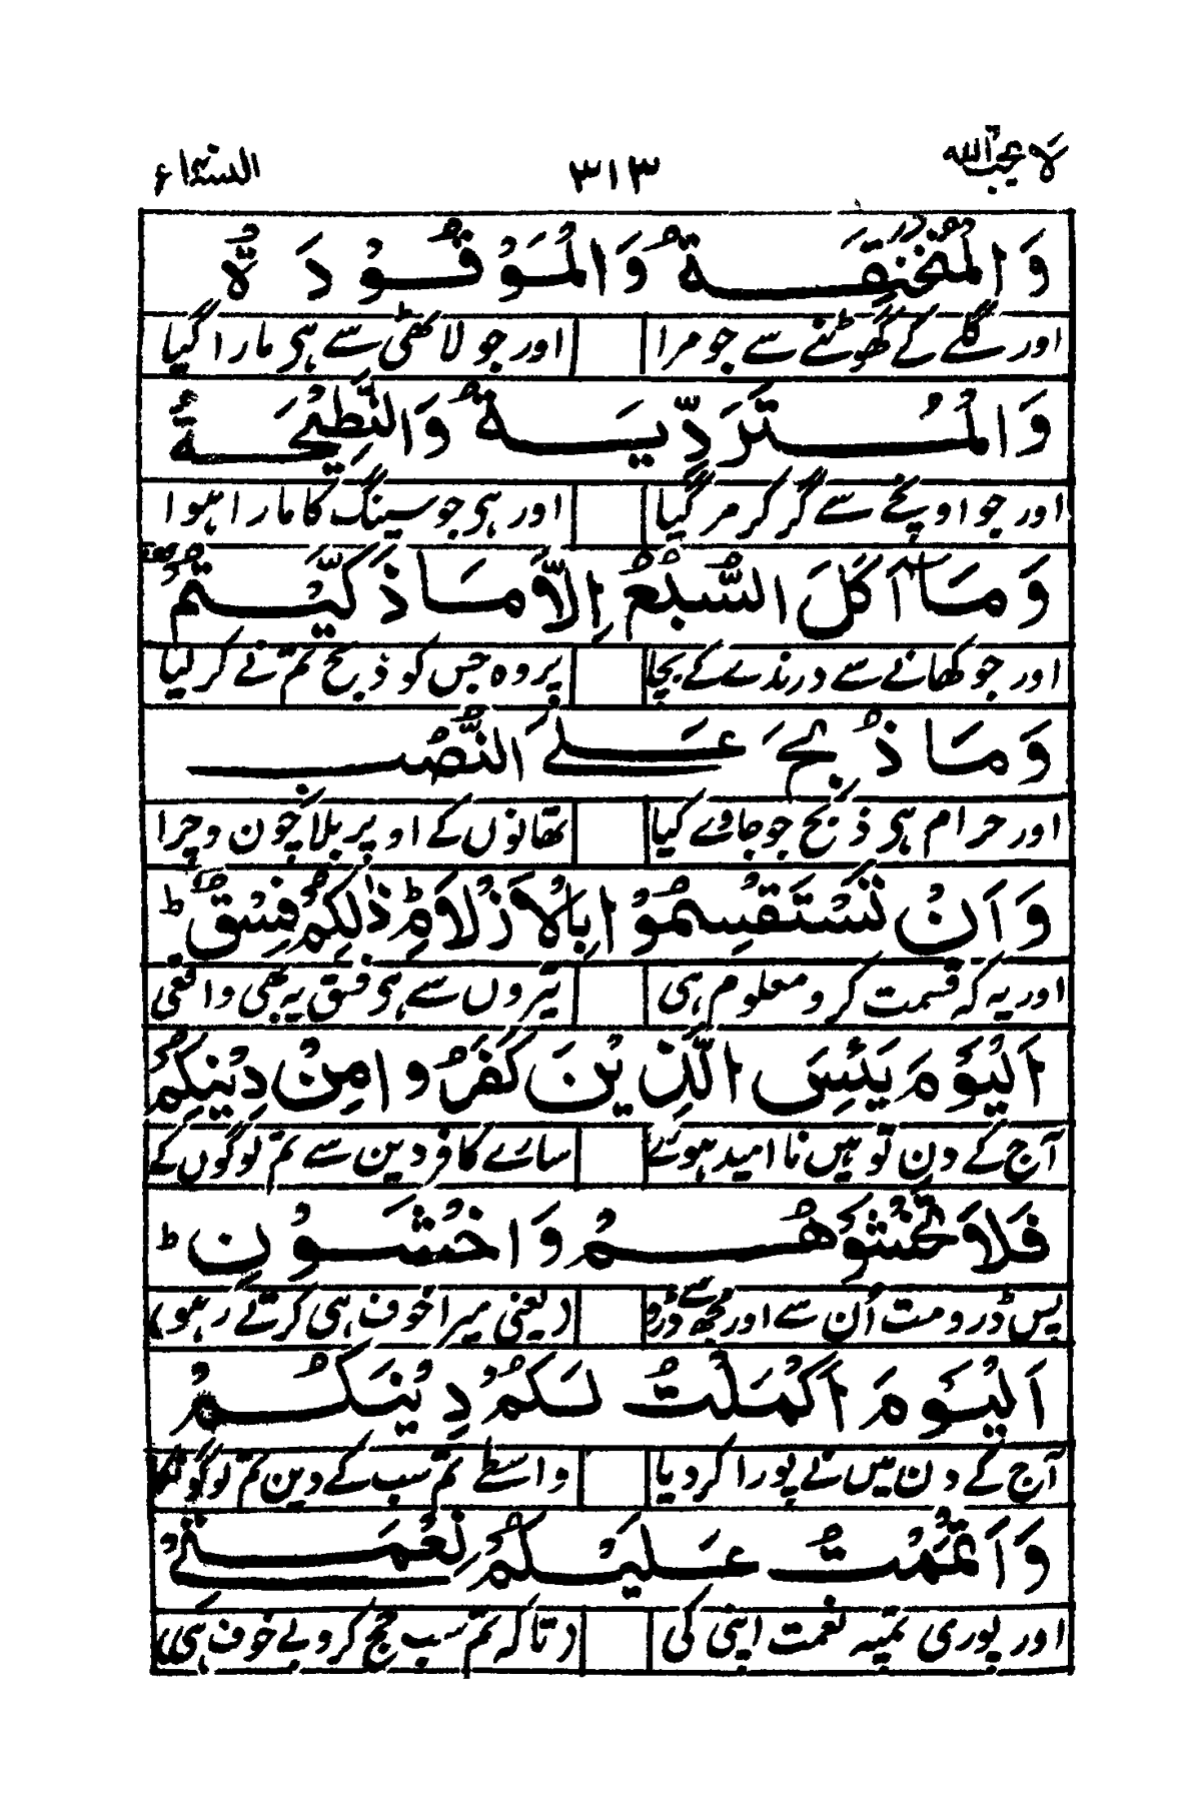 لا یحب اللہ ۳۱۳ النساء ۴
وَالْمُنْخَنِقَةُ وَالْمَوْقُوْذَةُ
اور گلے کے گھوٹنے سے جو مرا اور جو لاٹھی سے ہی مارا گیا
وَالْمُتَرَدِّيَةُ وَالنَّطِيْحَةُ
اور جو اونچے سے گر کر مر گیا اور ہی جو سینگ کا مارا ہوا
وَمَآ اَكَلَ السَّبُعُ اِلَّا مَا ذَكَّيْتُمْ
اور جو کھانے سے درندے کے بچا پر وہ جس کو ذبح تم نے کر لیا
وَمَا ذُبِحَ عَلَى النُّصُبِ
اور حرام ہی ذبح جو جاوے کیا تھانوں کے اوپر بلا چون وچرا
وَاَنْ تَسْتَقْسِمُوْا بِالْاَزْلَامِ ؕ ذٰلِكُمْ فِسْقٌ ؕ
اور یہ کہ قسمت کرو معلوم ہی تیروں سے ہی فسق یہ بھی واقعی
اَلْيَوْمَ يَئِسَ الَّذِيْنَ كَفَرُوْا مِنْ دِيْنِكُمْ
آج کے دن تو ہیں نا امید ہوئے سارے کافر دین سے تم لوگوں کے
فَلَا تَخْشَوْهُمْ وَاخْشَوْنِ ؕ
پس ڈرو مت اُن سے اور مجھ سے ڈرو (یعنی میرا خوف ہی کرتے رہو)
اَلْيَوْمَ اَكْمَلْتُ لَكُمْ دِيْنَكُمْ
آج کے دن میں نے پورا کر دیا واسطے تم سب کے دین تم لوگوں کا
وَاَتْمَمْتُ عَلَيْكُمْ نِعْمَتِيْ
اور پوری تمپہ نعمت اپنی کی (تا کہ تم سب حج کرو بے خوف ہی)